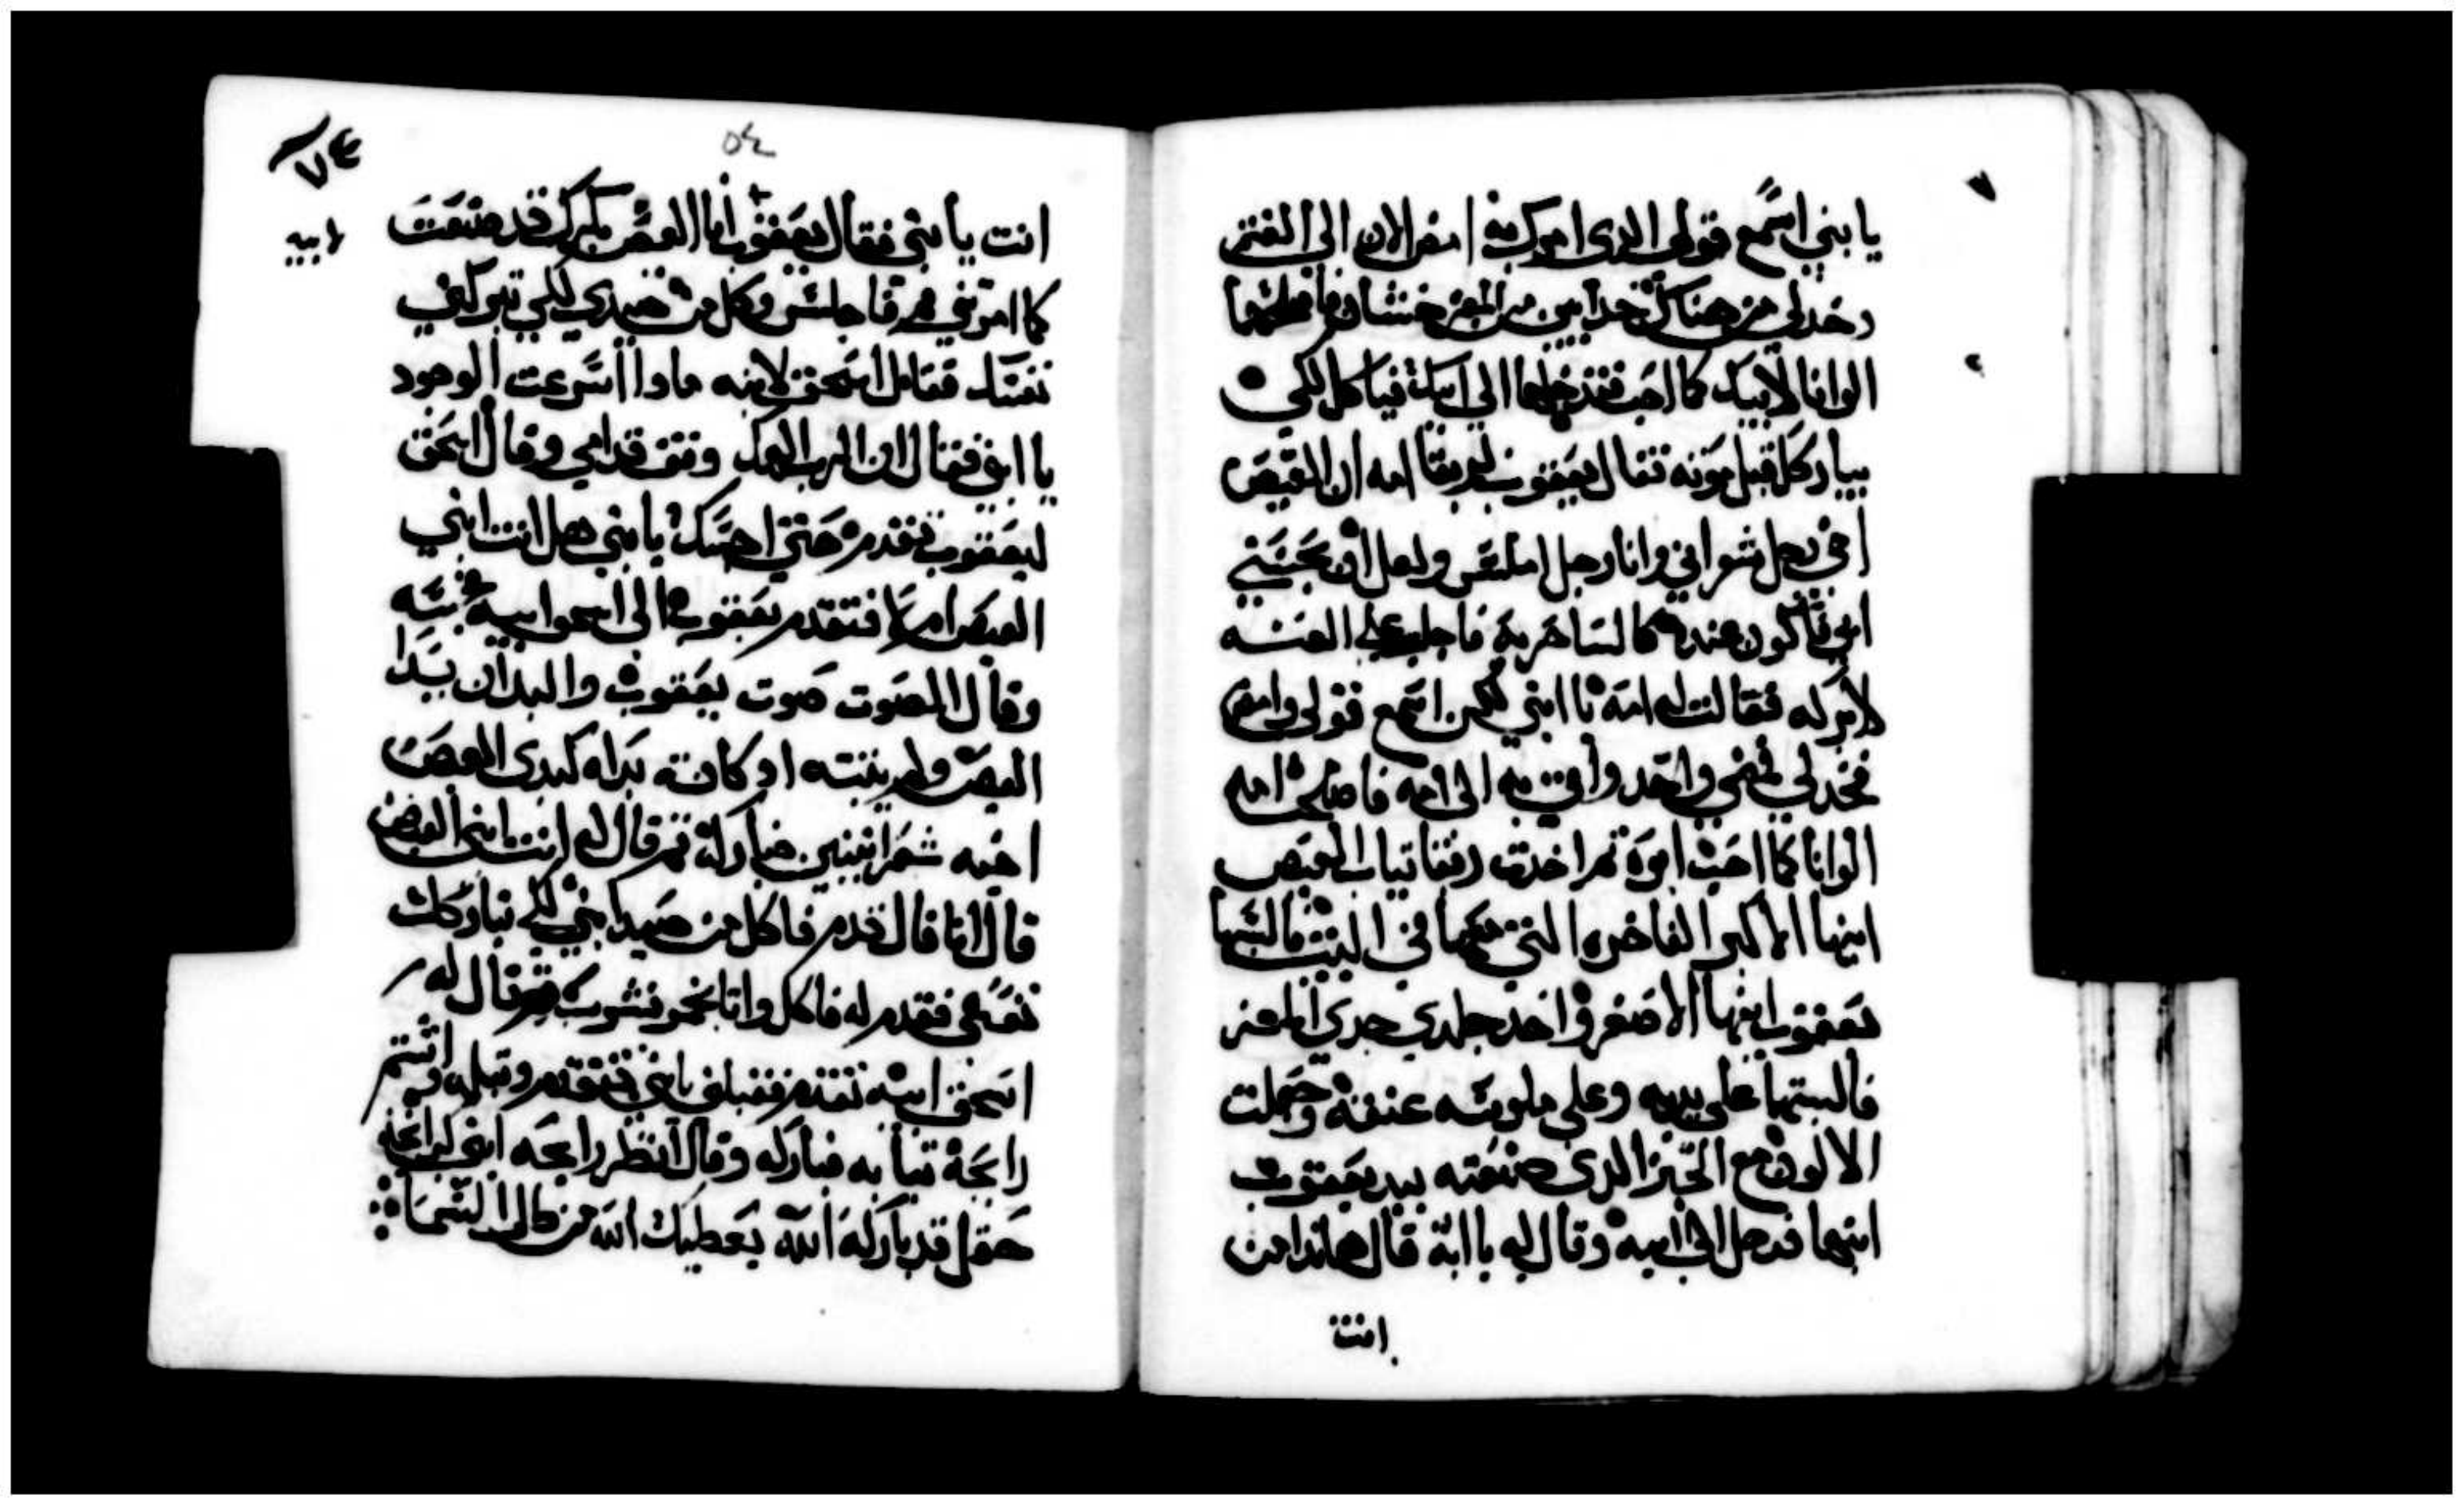 يا بني اسمع قولي الدي امرك به امض الان الى الغنم
وخد لي من هناك جدايين من المعز حسان فاصلحهما
الوانا لابيك كما احب فتدخلها الى ابيك فياكل لكي
يباركك قبل موته فقال يعقوب لربقا امه ان العيص
اخي رجل شعراني وانا رجل املس ولعل ان يجسني
ابي فاكون عنده كالساخر به فاجلب علي اللعنه
لا بركه فقالت له امه يا ابني لكن اسمع قولي وامض
فخد لي واحد واتى به الى امه فاصلحت امه
الوانا كما احب ابوه تم اخدت رفقا تياب العيص
ابنها الاكبر الفاخره التي معها في البيت فالبستها
يعقوب ابنها الاصغر واخد جلدي جدي المعز
فالبستها على يديه وعلى ملوسة عنقه وحملت
الالوان مع الخبز الدي صنعته بيد يعقوب
ابنها فدخل الى ابيه وقال له يا ابة قال هانذا من
انت
٧٤
٥٤
انت يا بني فقال يعقوب انا العيص بكرك قد صنعت
لابيه
كما امرتني قم فاجلس وكل من صيدي لكي تبركني
نفسك فقال اسحق لابنه مادا اسرعت الوجود
يا ابني فقال ان الرب الهك وفق قدامي وقال اسحق
ليعقوب تقدم حتى اجسك يا بني هل انت ابني
العيص ام لا فتقدم يعقوب الى اسحق ابيه فجسه
وقال الصوت صوت يعقوب واليدان يدا
العيص ولم يثبته اد كانت يداه كيدي العيص
اخيه شعرانيتين فباركه تم قال له انت ابني العيص
قال انا قال قدم فاكل من صيد ابني لكي تباركك
نفسي فقدم له فاكل واتا بخمر فشرب تم قال له
اسحق ابيه تقدم فقبلني يا بني فتقدم وقبله واشتم
رايحة تيابه فباركه وقال انظر رايحه ابني كرايحة
حقل قد باركه الله يعطيك الله من طل السما